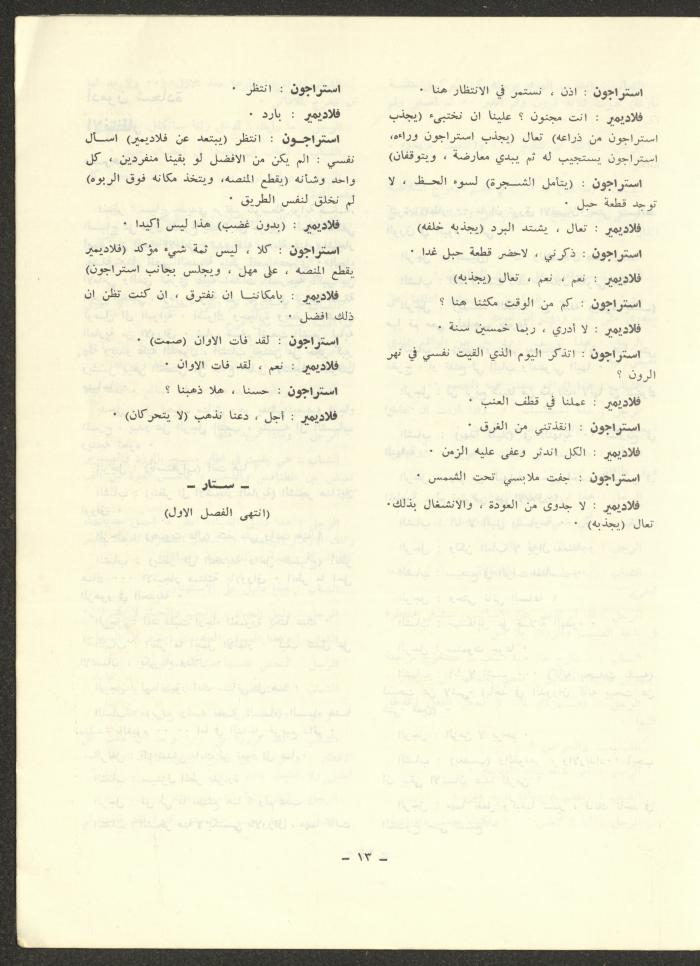 استراجون : اذن ، نستمر في الانتظار هنا ٠
فلاديمير : انت مجنون ؟ علينا ان نختبىء (يجذب
استراجون من ذراعه) تعال (يجذب استراجون وراءه،
استراجون يستجيب له ثم يبدي معارضة ، ويتوقفان)
استراجون : (يتأمل الشـــجرة) لسوء الحـظ ، لا
توجد قطعة حبل ٠
فلاديمير : تعال ، يشتد البرد (يجذبه خلفه)
استراجون : ذكرني ، لاحضر قطعة حبل غدا ٠
فلاديمير : نعم ، نعم ، تعال (يجذبه)
استراجون : كم من الوقت مكثنا هنا ؟
فلاديمير : لا ادري ، ربما خمسين سنة ٠
استراجون : اتذكر اليوم الذي القيت نفسي في نهر
الرون ؟
فلاديمير : عملنا في قطف العنب ٠
استراجون : انقذتني من الغرق ٠
فلاديمير : الكل اندثر وعفى عليه الزمن ٠
استراجون : جفت ملابسي تحت الشمس ٠
فلاديمير : لا جدوى من العودة ، والانشغال بذلك٠
تعال (يجذبه) ٠
استراجون : انتظر ٠
فلاديمير : بارد ٠
استراجــون : انتظر (يبتعد عن فلاديمير) اســأل
نفسي : الم يكن من الافضل لو بقينا منفردين ، كل
واحد وشأنه (يقطع المنصه، ويتخذ مكانه فوق الربوه)
لم نخلق لنفس الطريق ٠
فلاديمير : (بدون غضب) هذا ليس أكيدا ٠
استراجون : كلا ، ليس ثمة شيء مؤكد (فلاديمير
يقطع المنصه ، على مهل ، ويجلس بجانب استراجون)
فلاديمير : بامكاننــا ان نفترق ، ان كنت تظن ان
ذلك افضل ٠
استراجون : لقد فات الاوان (صمت) ٠
فلاديمير : نعم ، لقد فات الاوان ٠
استراجون : حسنا ، هلا ذهبنا ؟
فلاديمير : أجل ، دعنا نذهب (لا يتحركان) ٠
ــ ستـار ــ
(انتهى الفصل الاول)
ــ ١٣ ــ